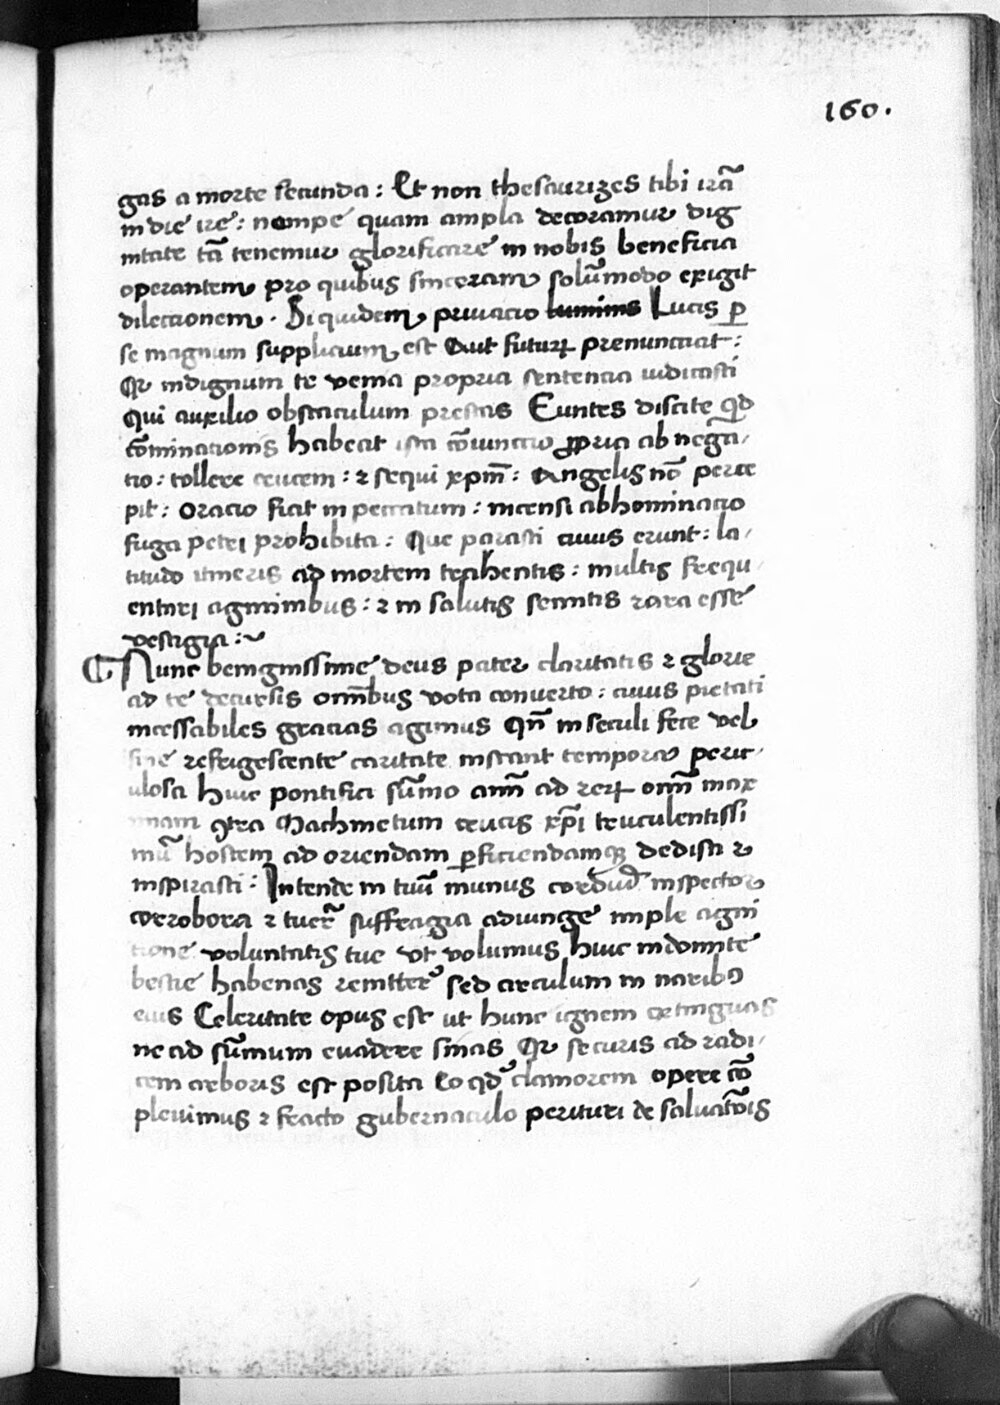 160.
gas a morte secunda : Et non thesaurizes tibi irã
in die ire : nempe quam ampla decoramur dig
nitate tã tenemur glorificare in nobis beneficia
operantem pro quibus sinceram solũmodo exigit
dilectionem . Si quidem privacio luminis Lucis ꝑ
se magnum supplicium est Aut futurꝝ prenunciat :
Qr indignum te venia propria sentencia iudicasti
Qui auxilio obstaculum prestas Euntes discite qd
cõminacionis habeat ista cõiunctio ꝓpria ab nega/
tio : tollere crucem : ⁊ sequi xpm̃ : Angelis nõ peper
pit : oracio fiat in peccatum : incensi abhominacio
fuga petri prohibita : Que parasti cuius erunt : la/
titudo itineris ad mortem trahentis : multis frequ/
entari agminibus : ⁊ in salutis semitis rara esse
vestigia :~
Nunc benignissime deus pater claritatis ⁊ glorie
ad te decursis om̃ibus vota converto : cuius pietati
incessabiles gracias agimus Qñ in seculi fece vel
sine refrigescente caritate instant tempora peric/
ulosa huic pontifici sũmo anm̃ ad rerꝝ om̃m max
imam ꝯtra Machmetum crucis xp̃i truculentissi
mũ hostem ad oriendam ꝑficiendamqꝫ dedisti ⁊
inspirasti : Intende in tuũ munus cordiũ inspector
corrobora ⁊ tuer̃ suffragia adiunge imple agni
tione voluntatis tue ut volumus huic indomite
bestie habenas remitter̃ sed circulum in naribꝰ
eius Celeritate opus est ut hunc ignem extinguas
ne ad sũmum evadere sinas Qr securis ad radi/
cem arboris est posita Eo qd clamorem opere cõ
plevimus ⁊ fracto gubernaculo perituri de salvatõis